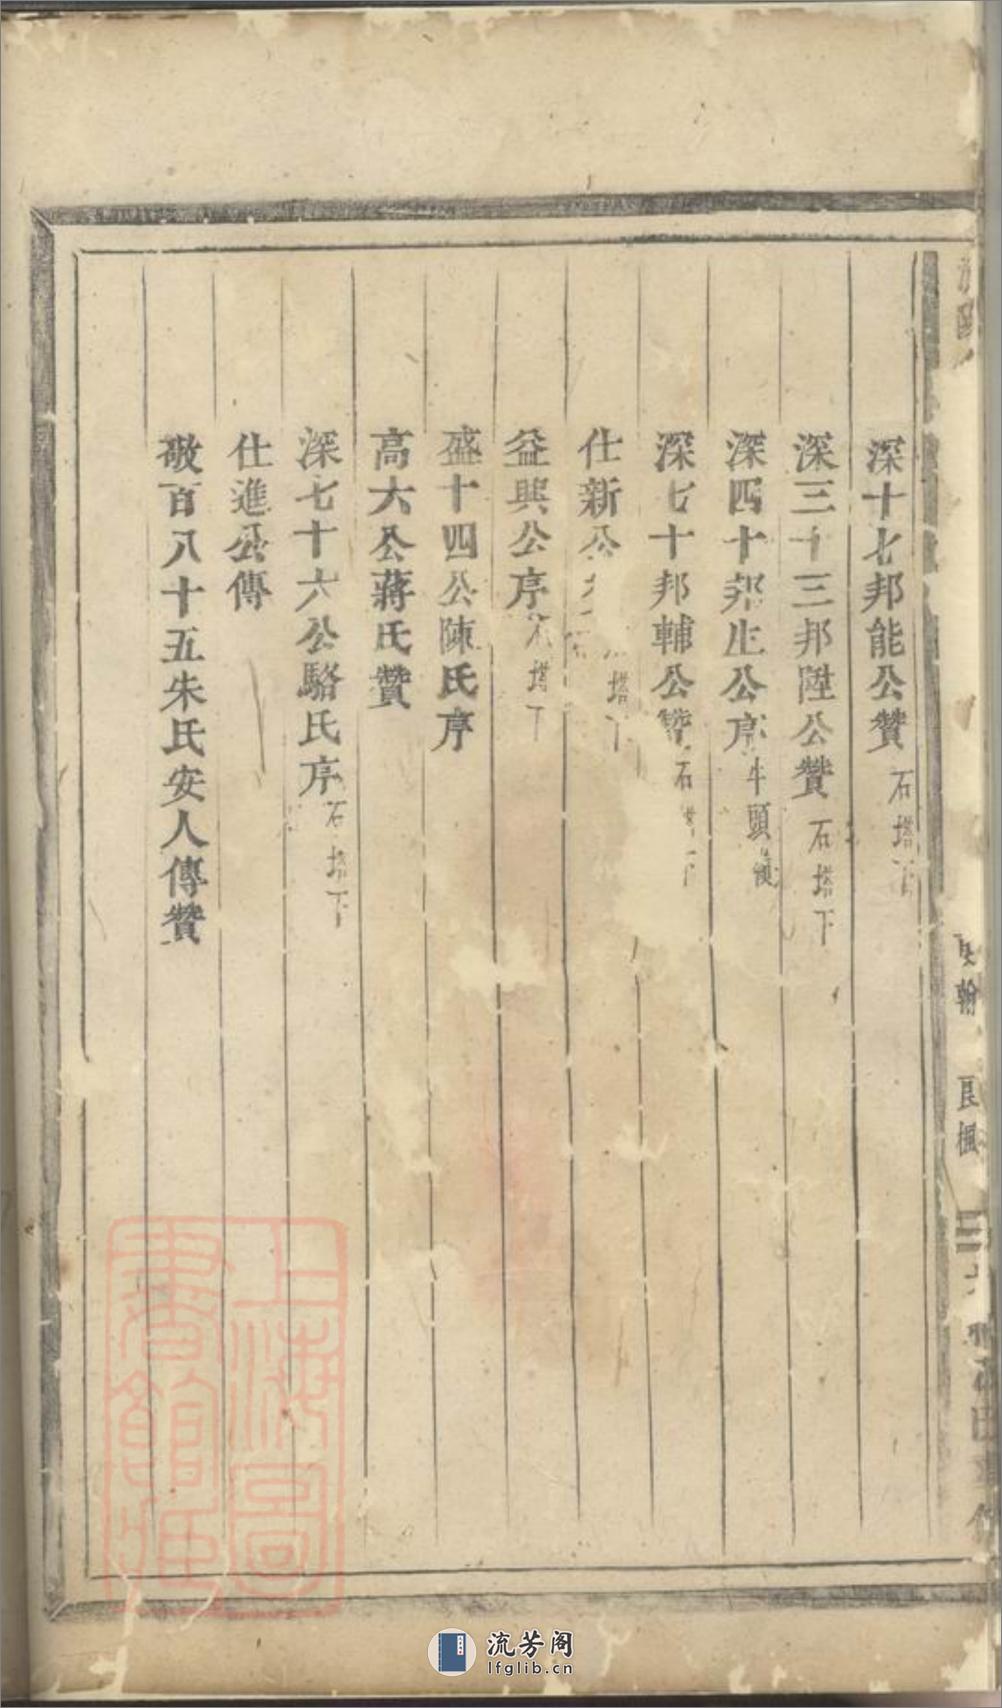 深十七邦能公贊 石塔下
深三十三邦陞公贊 石塔下
深四十邦生公序 牛頭後
深七十邦輔公贊 石塔下
仕新公 塔下
益興公序 石塔下
盛十四公陳氏序
高六公蔣氏贊
深七十六公駱氏序 石塔下
仕進公傳
敬百八十五朱氏安人傳贊
翰 良楓
上海圖書館藏
流芳阁
lfglib.cn